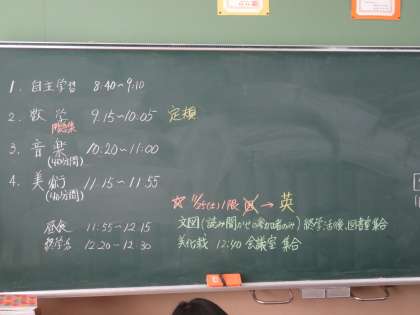 1. 自主学習 8:40~9:10
2. 数学 9.15~10:05 定規
問題集
3. 音楽 10:20~11:00
(40分間)
4. 美術 11.15~11.55
(40分間)
☆ 11/25(土)1限 国→英
昼食 11:55~12.15
文図(読み聞かせ 参加者のみ)終学活後、図書室集合
終学活 12.20~12.30
美化栽 12:40 会議室 集合